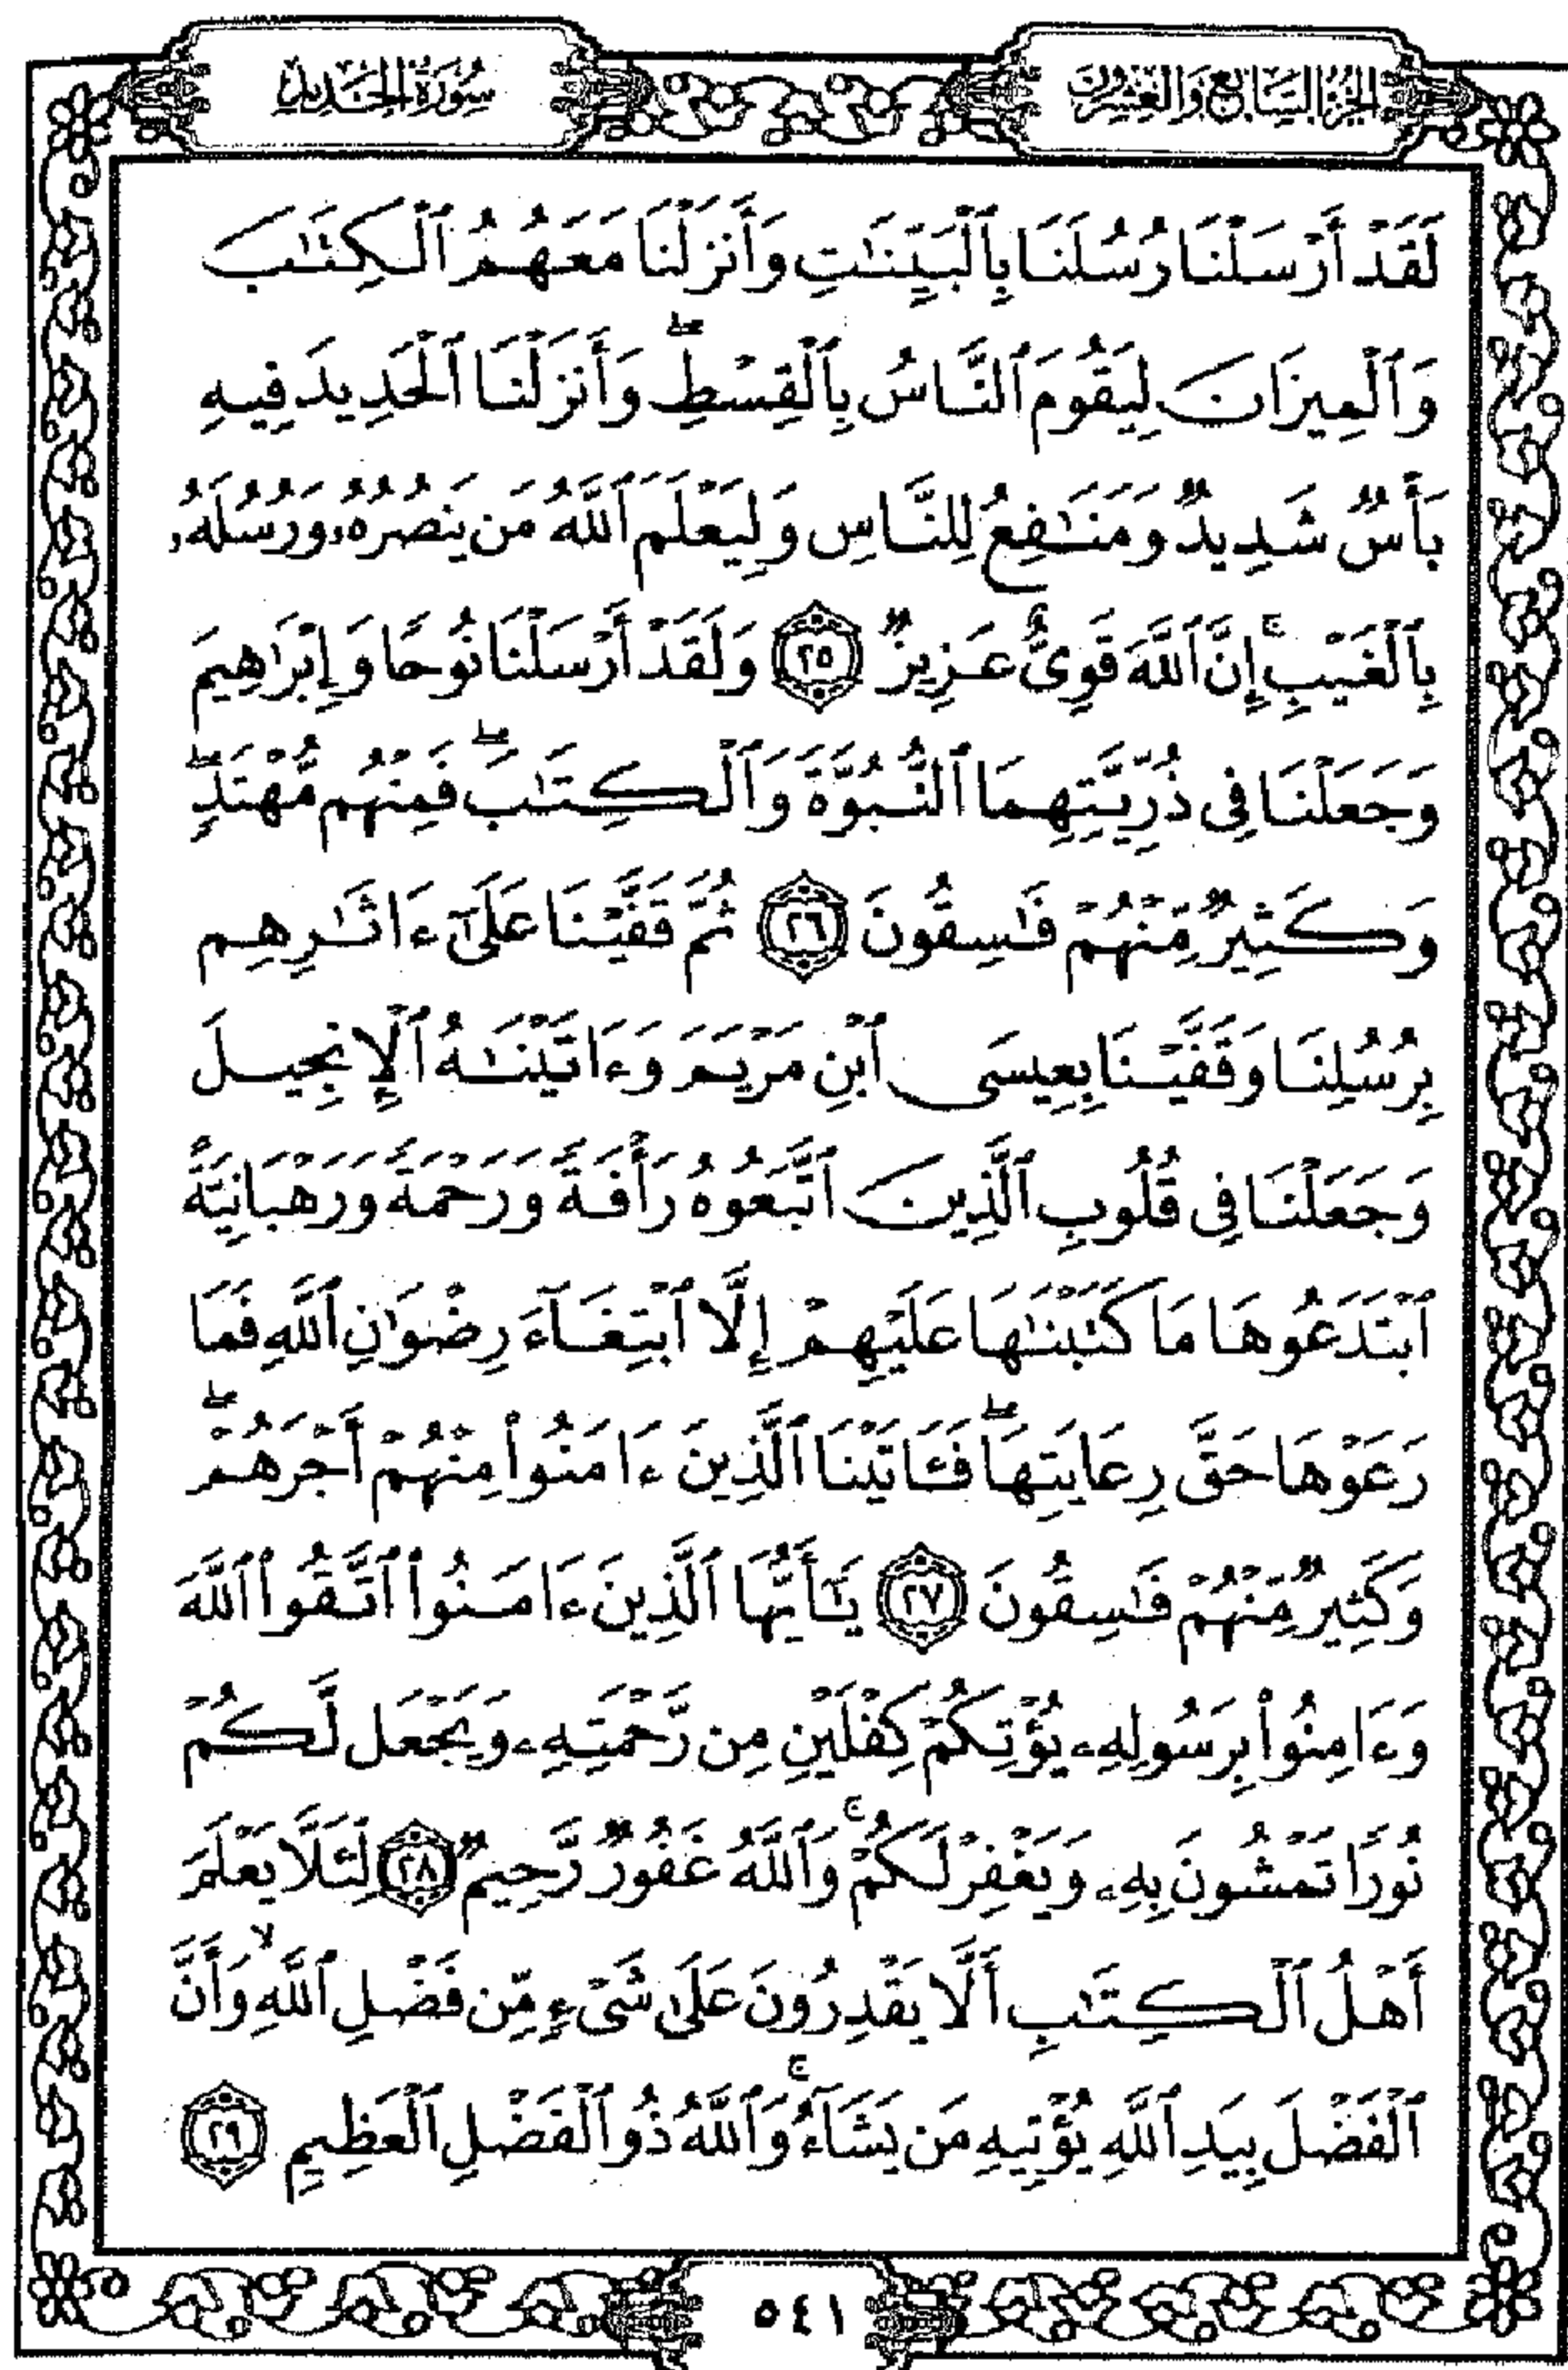 الجزء السابع والعشرون
سورة الحديد
لَقَدْ أَرْسَلْنَا رُسُلَنَا بِٱلْبَيِّنَٰتِ وَأَنزَلْنَا مَعَهُمُ ٱلْكِتَٰبَ
وَٱلْمِيزَانَ لِيَقُومَ ٱلنَّاسُ بِٱلْقِسْطِ ۖ وَأَنزَلْنَا ٱلْحَدِيدَ فِيهِ
بَأْسٌ شَدِيدٌ وَمَنَٰفِعُ لِلنَّاسِ وَلِيَعْلَمَ ٱللَّهُ مَن يَنصُرُهُۥ وَرُسُلَهُۥ
بِٱلْغَيْبِ ۚ إِنَّ ٱللَّهَ قَوِىٌّ عَزِيزٌ ٢٥ وَلَقَدْ أَرْسَلْنَا نُوحًا وَإِبْرَٰهِيمَ
وَجَعَلْنَا فِى ذُرِّيَّتِهِمَا ٱلنُّبُوَّةَ وَٱلْكِتَٰبَ ۖ فَمِنْهُم مُّهْتَدٍ ۖ
وَكَثِيرٌ مِّنْهُمْ فَٰسِقُونَ ٢٦ ثُمَّ قَفَّيْنَا عَلَىٰٓ ءَاثَٰرِهِم
بِرُسُلِنَا وَقَفَّيْنَا بِعِيسَى ٱبْنِ مَرْيَمَ وَءَاتَيْنَٰهُ ٱلْإِنجِيلَ
وَجَعَلْنَا فِى قُلُوبِ ٱلَّذِينَ ٱتَّبَعُوهُ رَأْفَةً وَرَحْمَةً وَرَهْبَانِيَّةً
ٱبْتَدَعُوهَا مَا كَتَبْنَٰهَا عَلَيْهِمْ إِلَّا ٱبْتِغَآءَ رِضْوَٰنِ ٱللَّهِ فَمَا
رَعَوْهَا حَقَّ رِعَايَتِهَا ۖ فَـَٔاتَيْنَا ٱلَّذِينَ ءَامَنُوا۟ مِنْهُمْ أَجْرَهُمْ ۖ
وَكَثِيرٌ مِّنْهُمْ فَٰسِقُونَ ٢٧ يَٰٓأَيُّهَا ٱلَّذِينَ ءَامَنُوا۟ ٱتَّقُوا۟ ٱللَّهَ
وَءَامِنُوا۟ بِرَسُولِهِۦ يُؤْتِكُمْ كِفْلَيْنِ مِن رَّحْمَتِهِۦ وَيَجْعَل لَّكُمْ
نُورًا تَمْشُونَ بِهِۦ وَيَغْفِرْ لَكُمْ ۚ وَٱللَّهُ غَفُورٌ رَّحِيمٌ ٢٨ لِّئَلَّا يَعْلَمَ
أَهْلُ ٱلْكِتَٰبِ أَلَّا يَقْدِرُونَ عَلَىٰ شَىْءٍ مِّن فَضْلِ ٱللَّهِ ۙ وَأَنَّ
ٱلْفَضْلَ بِيَدِ ٱللَّهِ يُؤْتِيهِ مَن يَشَآءُ ۚ وَٱللَّهُ ذُو ٱلْفَضْلِ ٱلْعَظِيمِ ٢٩
٥٤١